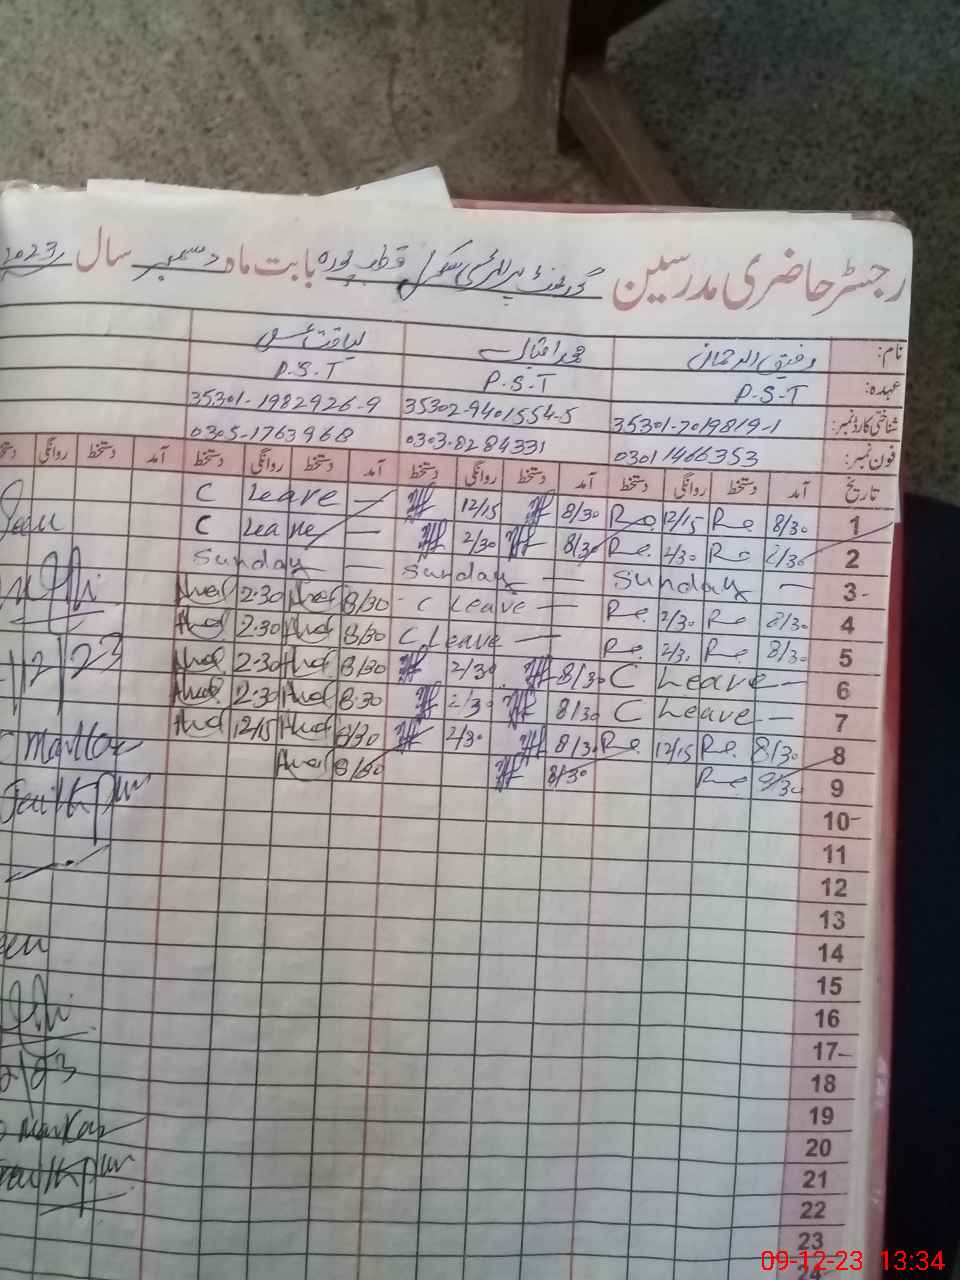 رجسٹر حاضری مدرسین گورنمنٹ پرائمری سکول قطب پورہ بابت ماہ دسمبر سال 2023
نام: رفیق الرحمان محمد اقبال لیاقت
عہدہ: P.S.T P.S.T P.S.T
شناختی کارڈ نمبر: 35301-7019819-1 35302-9401554-5 35301-1982926-9
فون نمبر: 0301 1466353 0303-8284331 0305-1763968
تاریخ آمد دستخط روانگی دستخط آمد دستخط روانگی دستخط آمد دستخط روانگی دستخط آمد دستخط روانگی
1 8/30 Re. 12/15 Re. 8/30 12/15 C Leave
2 8/30 Re 2/30 Re. 8/30 2/30 C Leave
3 Sunday Sunday Sunday
4 8/30 Re 2/30 Re. C Leave 8/30 2.30
5 8/30 Re. 2/30 Re. C Leave 8/30 2.30
6 C Leave 8/30 2/30 8/30 2.30
7 C Leave 8/30 2/30 8.30 2.30
8 8/30 Re. 12/15 Re. 8/30 2/30 8/30 12/15
9 Re 8/30 8/30
10
11
12
13
14
15
16
17
18
19
20
21
22
23
24
09-12-23 13:34